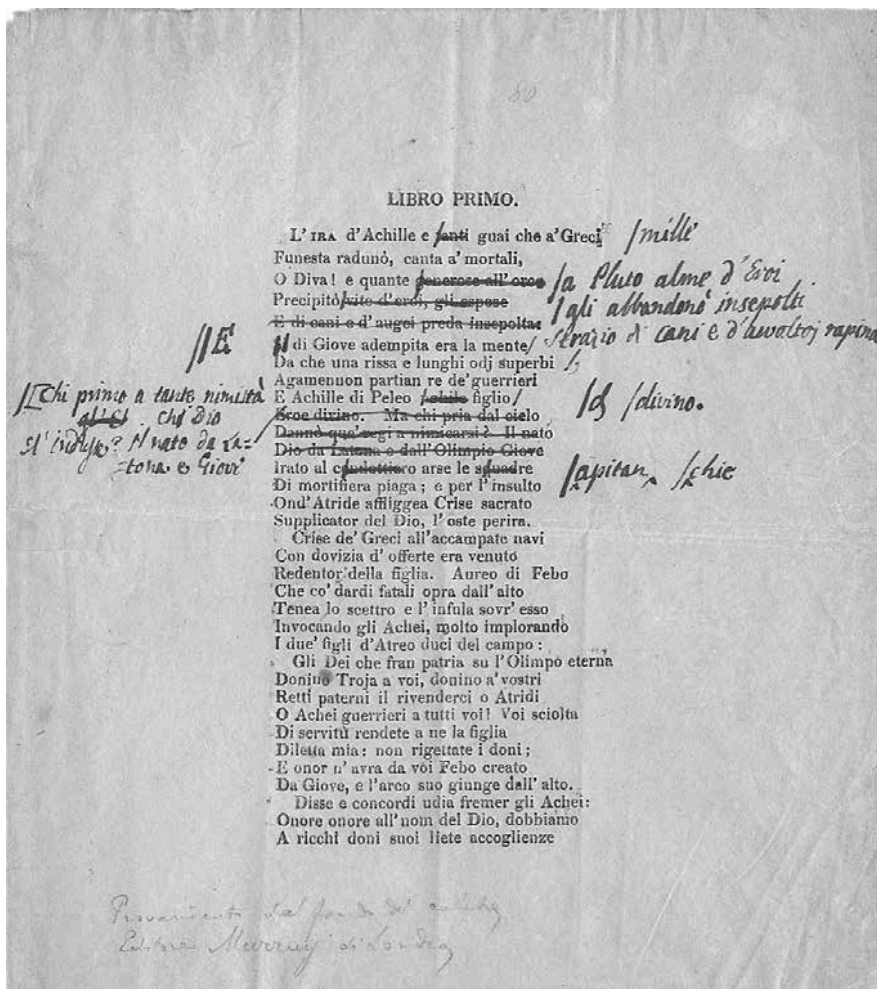 80
LIBRO PRIMO.
L' IRA d'Achille e tanti guai che a' Greci /mille
Funesta radunò, canta a' mortali,
O Diva! e quante generose all' orco /a Pluto alme d'Eroi
Precipitò vite d'eroi, gli espose /gli abbandonò insepolti
E di cani e d'augei preda insepolta: strazio di cani e d'avvoltoj rapina
//E di Giove adempita era la mente/
Da che una rissa e lunghi odj superbi /,
Agamennon partian re de'guerrieri
E Achille di Peleo figlio/ /divino.
Eroe divino. Ma chi pria dal cielo
Dannò que' regi a nimicarsi? Il nato
Dio da Latona e dall'Olimpio Giove
Chi primo a tante nimistà
chi Dio
Il nato da La-
-tona e Giove
Irato al condottiero arse le squadre /apitan /chie
Di mortifiera piaga; e per l'insulto
Ond'Atride affliggea Crise sacrato
Supplicator del Dio, l'oste perira.
Crise de' Greci all'accampate navi
Con dovizia d' offerte era venuto
Redentor della figlia. Aureo di Febo
Che co' dardi fatali opra dall' alto
Tenea lo scettro e l' infula sovr' esso
Invocando gli Achei, molto implorando
I due' figli d'Atreo duci del campo:
Gli Dei che fran patria su l'Olimpo eterna
Donino Troja a voi, donino a' vostri
Retti paterni il rivenderci o Atridi
O Achei guerrieri a tutti voi! Voi sciolta
Di servitù rendete a ne la figlia
Diletta mia: non rigettate i doni;
E onor n' avra da voi Febo creato
Da Giove, e l'arco suo giunge dall' alto.
Disse e concordi udia fremer gli Achei:
Onore onore all' nom del Dio, dobbiamo
A ricchi doni suoi liete accoglienze
Editore Murray di Londra